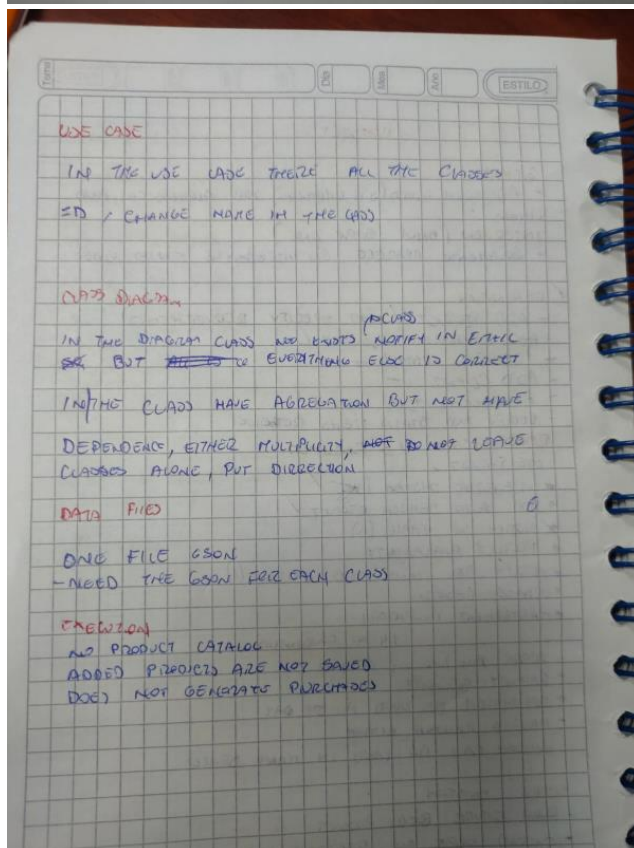 Tema
Dia
Mes
Año
ESTILO
USE CASE
IN THE USE CASE THERE ALL THE CLASSES
=D / CHANGE NAME IN THE CASS
CLASS DIAGRAM
CLASS
IN THE DIAGRAM CLASS NO EXISTS NOTIFY IN EITHER
BUT EVERITHING ELSE IS CORRECT
IN THE CLASS HAVE AGREGATION BUT NOT HAVE
DEPENDENCE, EITHER MULTIPLICITY, NOT DO NOT LEAVE
CLASSES ALONE, PUT DIRRECTION
DATA FILES
6
ONE FILE GSON
- NEED THE GSON FOR EACH CLASS
EXECUTION
NO PRODUCT CATALOG
ADDED PRODUCTS ARE NOT SAVED
DOES NOT GENERATE PURCHASES